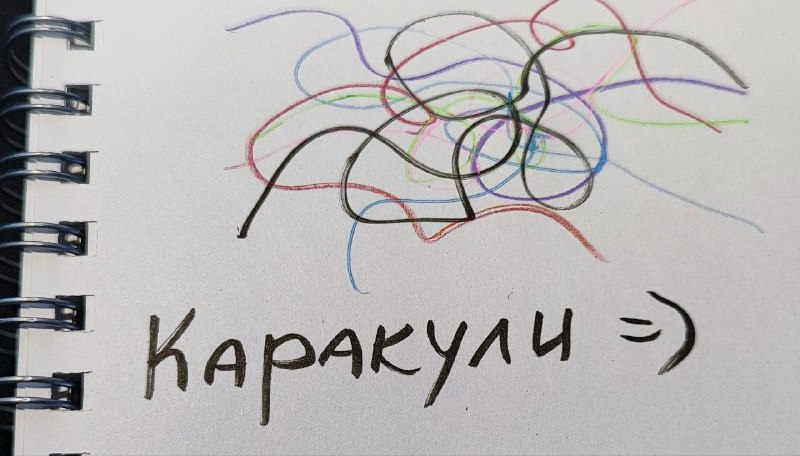 Каракули =)